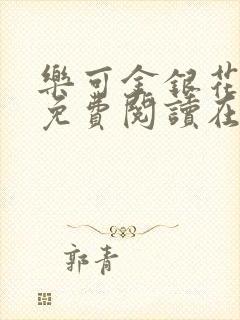 樂可金銀花
免費閱讀在
郭青